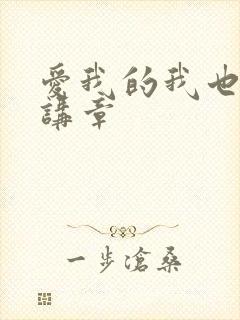 愛我的我也
講章
一步滄桑